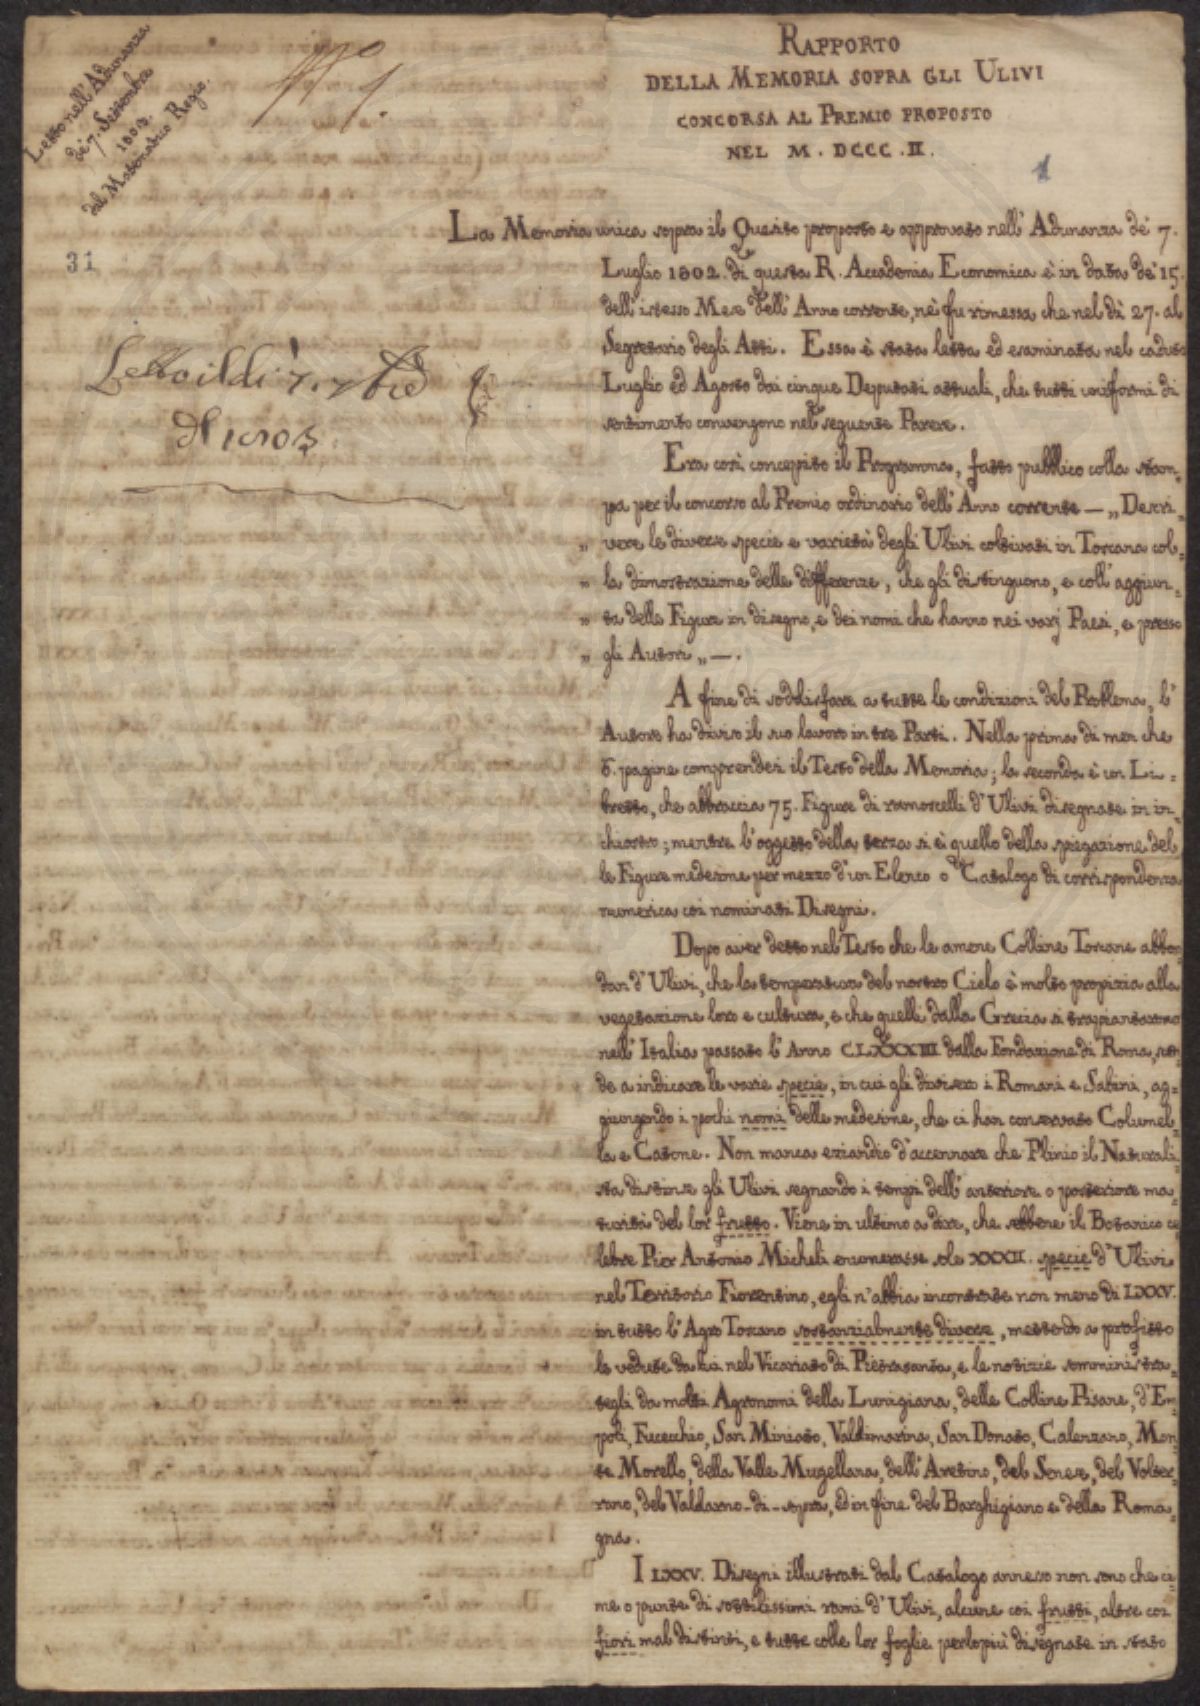 Letto nell'Adunanza
de' 7. Settembre
1803.
dal Matematico Regio.
N.° 1.
31
Letto il dì 7. 7bre
del 1803
RAPPORTO
DELLA MEMORIA SOPRA GLI ULIVI
CONCORSA AL PREMIO PROPOSTO
NEL M. DCCC. II.
1
La Memoria unica sopra il Quesito proposto e approvato nell'Adunanza de' 7.
Luglio 1802. di questa R. Accademia Economica è in data de' 15.
dell'istesso Mese dell'Anno corrente, nè fu rimessa che nel dì 27. al
Segretario degli Atti. Essa è stata letta ed esaminata nel caduto
Luglio ed Agosto dai cinque Deputati attuali, che tutti uniformi di
sentimento convengono nel seguente Parere.
Era così concepito il Programma, fatto pubblico colla stam-
pa per il concorso al Premio ordinario dell'Anno corrente — „ Descri-
„ vere le diverse specie e varietà degli Ulivi coltivati in Toscana col-
„ la dimostrazione delle differenze, che gli distinguono, e coll'aggiun-
„ ta delle Figure in disegno, e dei nomi che hanno nei varj Paesi, e presso
„ gli Autori „ —.
A fine di soddisfare a tutte le condizioni del Problema, l'
Autore ha diviso il suo lavoro in tre Parti. Nella prima di men che
6. pagine comprendesi il Testo della Memoria; la seconda è un Li-
bretto, che abbraccia 75. Figure di ramoscelli d'Ulivi disegnate in in-
chiostro; mentre l'oggetto della terza si è quello della spiegazione del-
le Figure medesime per mezzo d'un Elenco o Catalogo di corrispondenza
numerica coi nominati Disegni.
Dopo aver detto nel Testo che le amene Colline Toscane abbon-
dan d'Ulivi, che la temperatura del nostro Cielo è molto propizia alla
vegetazione loro e cultura, e che quelli dalla Grecia si trapiantarono
nell'Italia passato l'Anno CLXXXIII dalla Fondazione di Roma, scen-
de a indicare le varie specie, in cui gli divisero i Romani e Sabini, ag-
giungendo i pochi nomi delle medesime, che ci han conservato Columel-
la e Catone. Non manca eziandio d'accennare che Plinio il Naturali-
sta distinse gli Ulivi segnando i tempi dell'anteriore o posteriore ma-
turità del lor frutto. Viene in ultimo a dire, che sebbene il Botanico ce-
lebre Pier Antonio Micheli enumerasse sole XXXII. specie d'Ulivi
nel Territorio Fiorentino, egli n'abbia incontrate non meno di LXXV.
in tutto l'Agro Toscano sostanzialmente diverse, mettendo a profitto
le vedute da lui nel Vicariato di Pietrasanta, e le notizie somministra-
tegli da molti Agronomi della Lunigiana, delle Colline Pisane, d'Em-
poli, Fucecchio, San Miniato, Valdimarina, San Donato, Calenzano, Mon-
te Morello, della Valle Mugellana, dell'Aretino, del Senese, del Volter-
rano, del Valdarno-di-sopra, ed in fine del Barghigiano e della Roma-
gna.
I LXXV. Disegni illustrati dal Catalogo annesso non sono che ci-
me o punte di sottilissimi rami d'Ulivi, alcune coi frutti, altre coi
fiori mal distinti, e tutte colle lor foglie perlopiù disegnate in stato